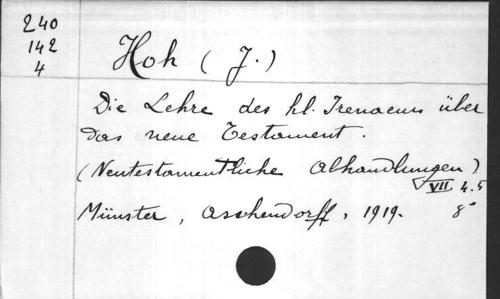 240
142
4
Hoh (J.)
Die Lehre des hl. Irenaeus über
das neue Testament.
(Neutestamentliche Abhandlungen)
VII 4.5
Münster, Aschendorff, 1919. 8°